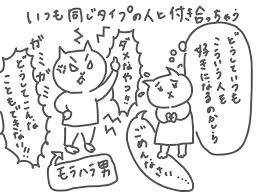 いつも同じタイプの人と付き合っちゃう
どうしていつも
こういう人を
好きになるのかしら
ダメなやつ!!
ガミガミ
どうしてこんな
こともできない!!
ごめん
なさい…
モラハラ男